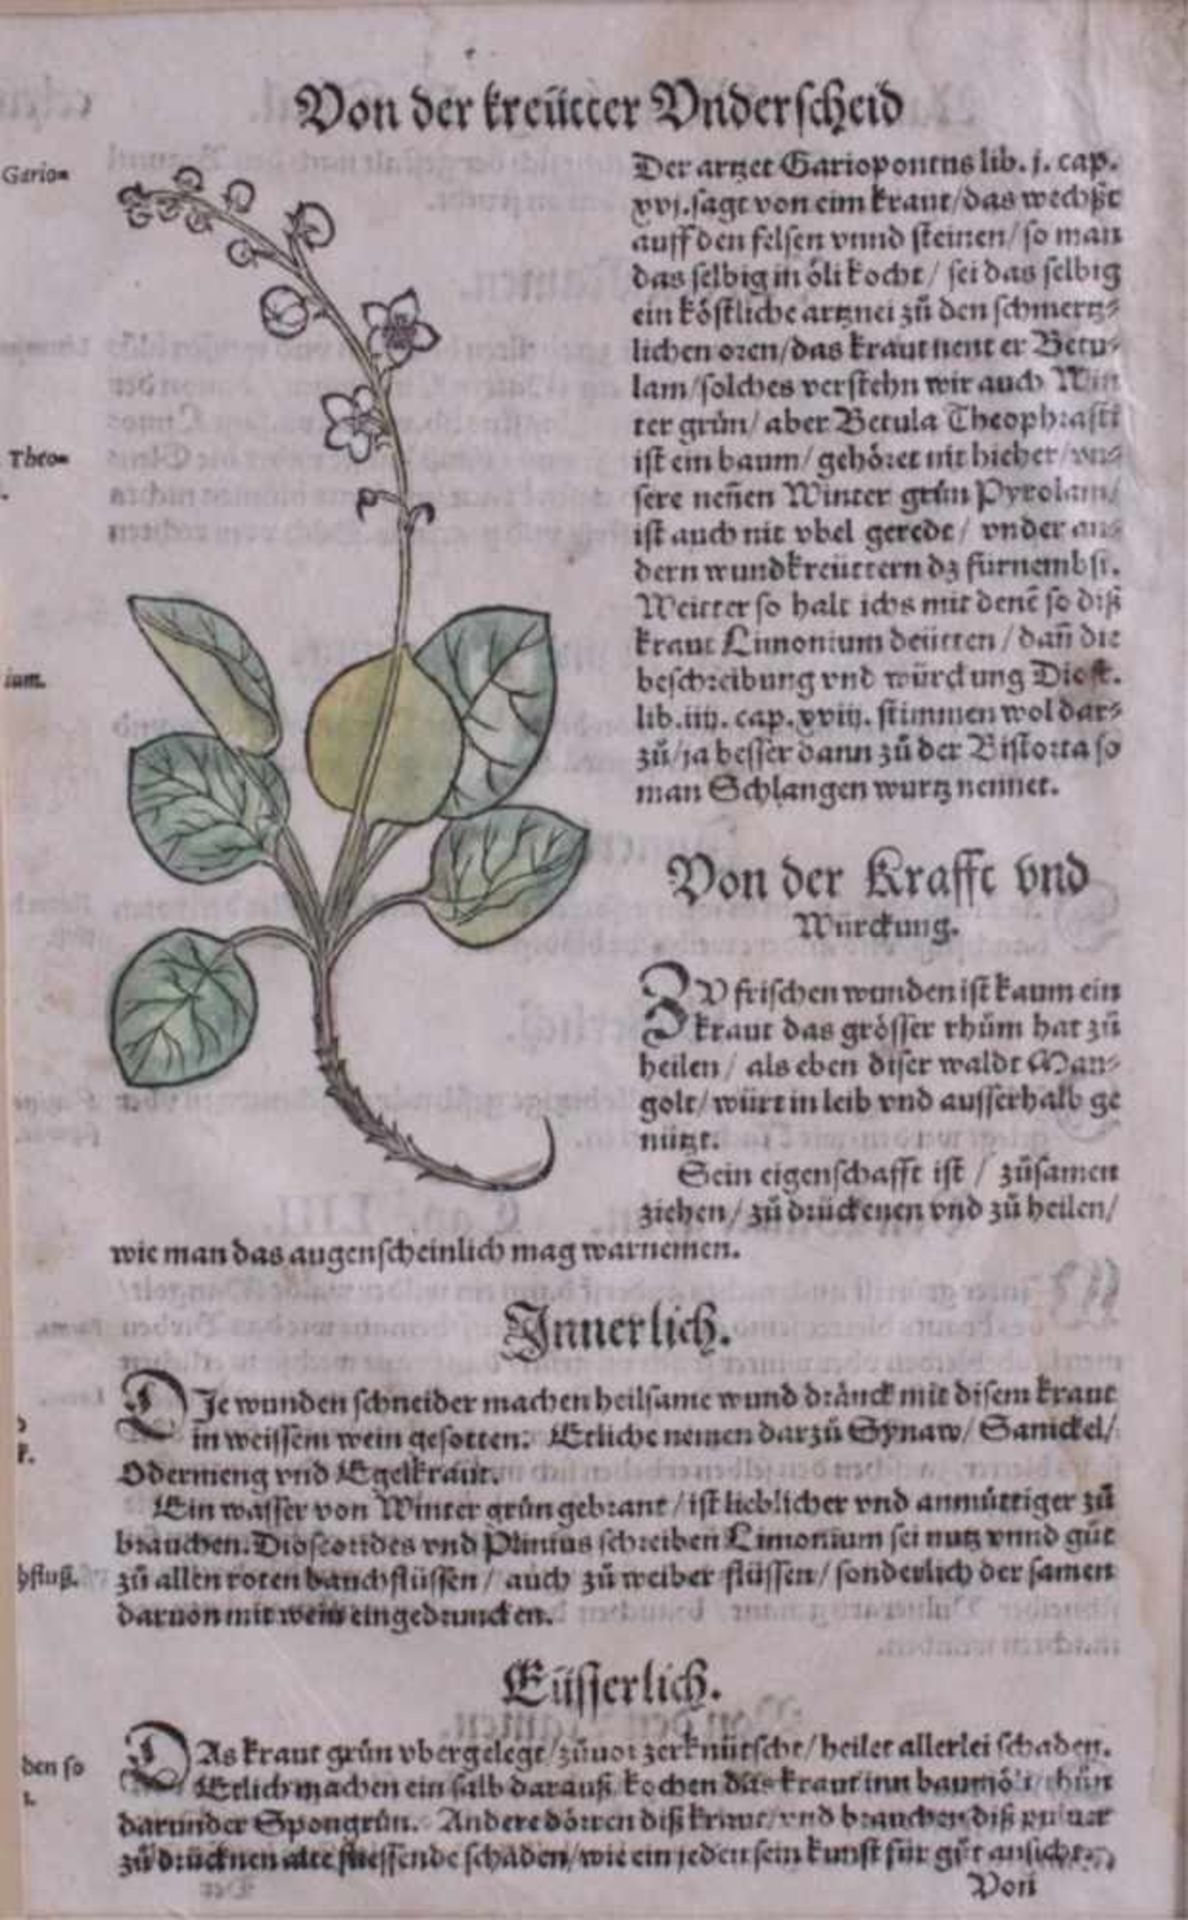 Von der kreütter Vnderscheid
Gario=
Der artzet Gariopontus lib. j. cap.
xvj. sagt von eim kraut/das wechßt
auff den felsen vnnd steinen/so man
das selbig in öli kocht/ sei das selbig
ein köstliche artznei zů den schmertz=
lichen oren/das kraut nent er Betu=
lam/solches verstehn wir auch Win
ter grün/ aber Betula Theophrasti
Theo=
ist ein baum/ gehöret nit hieher/vn=
sere neñen Winter grün Pyrolam/
ist auch nit vbel geredt/ vnder an=
dern wundkreüttern dz fürnembst.
Weitter so halt ichs mit denẽ so diß
kraut Limonium deütten/ dañ die
ium.
beschreibung vnd würckung Diosk.
lib. iiij. cap. xviij. stimmen wol dar=
zů/ja besser dann zů der Bistorta so
man Schlangen wurtz nennet.
Von der Krafft vnd
Würckung.
ZV frischen wunden ist kaum ein
kraut das grösser rhům hat zů
heilen/ als eben diser waldt Man=
golt/würt in leib vnd ausserhalb ge
nützt.
Sein eigenschafft ist / zůsamen
ziehen/ zů drückenen vnd zů heilen/
wie man das augenscheinlich mag warnemen.
Innerlich.
DIe wunden schneider machen heilsame wund dränck mit disem kraut
in weissem wein gesotten. Etliche nemen darzů Synaw/ Sanickel/
Odermeng vnd Egelkraut.
Ein wasser von Winter grün gebrant/ist lieblicher vnd anmüttiger zů
brauchen. Dioscorides vnd Plinius schreiben Limonium sei nutz vnnd gůt
hfluß.
zů allen roten bauchflüssen/ auch zů weiber flüssen/ sonderlich der samen
daruon mit wein eingedruncken.
Eüsserlich.
DAs kraut grün vbergelegt/zůuor zerknütscht/heilet allerlei schaden.
den so
Etlich machen ein salb darauß/ kochen das kraut inn baumöl/ thůn
darunder Spongrün. Andere dörren diß kraut/vnd brauchen diß puluer
zů drücknen alte fliessende schäden/wie ein jeden sein kunst für gůt ansicht.
Von